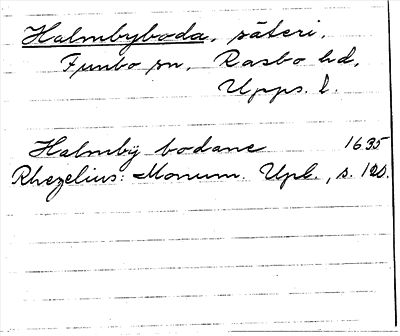 Halmbyboda, säteri,
Funbo sn, Rasbo hd,
Upps. l.
Halmbÿ bodane 1635
Rhezelius: Monum. Upl., s. 120.